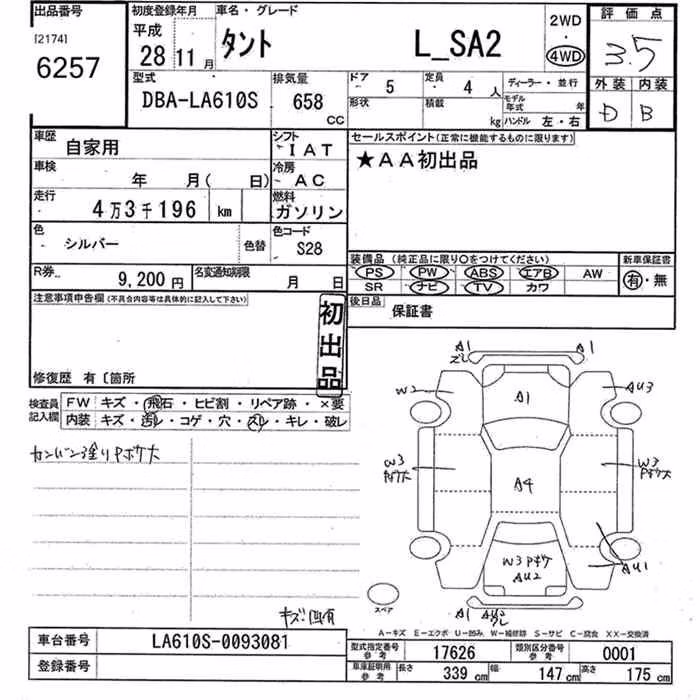 出品番号
[2174]
6257
初度登録年月
平成
28 11月
車名・グレード
タント L_SA2
2WD
・
4WD
評価点
3.5
外装 内装
D B
型式
DBA-LA610S
排気量
658
CC
ドア 5
形状
定員 4人
積載 kg
ディーラー・並行
モデル年式 年
ハンドル 左・右
車歴 自家用
シフト IAT
車検 年 月( 日)
冷房 AC
走行 4万3千196 km
燃料 ガソリン
色 シルバー 色替
色コード S28
R券 9,200円
名変通知期限 月 日
セールスポイント(正常に機能するものに限ります)
★AA初出品
装備品 (純正品に限り○をつけてください)
PS PW ABS エアB AW
SR ナビ TV カワ
新車保証書
有・無
後日品 保証書
注意事項申告欄(不具合内容等は具体的に記入して下さい)
初出品
修復歴 有〔箇所
検査員記入欄
FW キズ・飛石・ヒビ割・リペア跡・×要
内装 キズ・汚レ・コゲ・穴・スレ・キレ・破レ
カンバン塗りPボケ大
キズ凹有
A1
ズレ
A1
W2
AU3
A1
W3
Pボケ大
W3
Pボケ大
A4
W3 Pボケ
AU2
AU1
A1 AU2
スペア
A-キズ E-エクボ U-凹み W-補修跡 S-サビ C-腐食 XX-交換済
車台番号 LA610S-0093081
登録番号
型式指定番号 参考 17626
類別区分番号 参考 0001
車庫証明用 参考 長さ 339 cm 幅 147 cm 高さ 175 cm